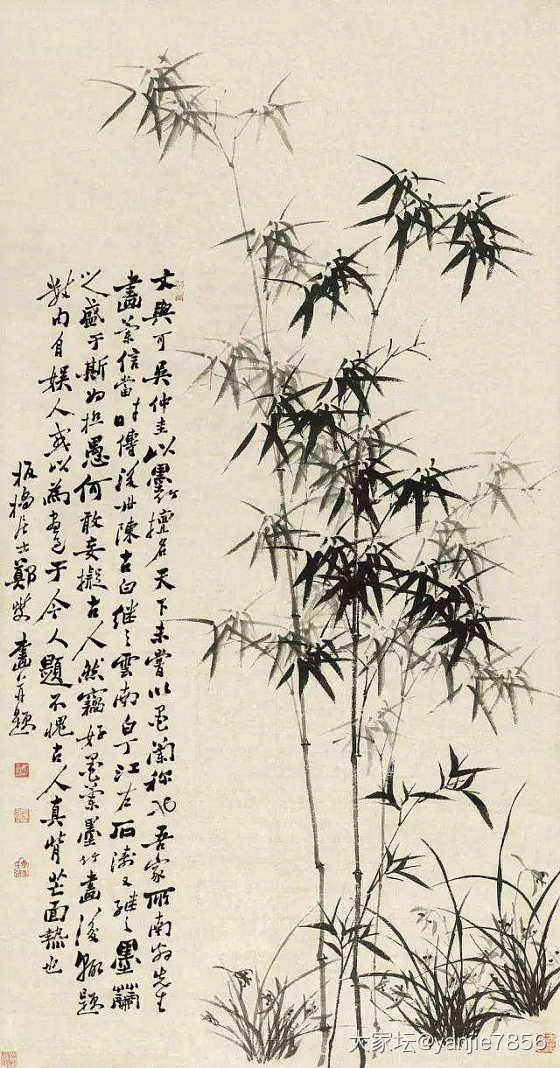 文與可吳仲圭以墨竹擅名天下未嘗以墨蘭稱也吾家所南翁先生
畫蘭信當時傳後世陳古白繼之雲南白丁江左石濤又繼之墨蘭
之盛于斯為極愚何敢妄擬古人然竊好墨蘭墨竹畫後輒題
數自娛人或以為畫于今人題不愧古人真背芒面熱也
板橋居士鄭燮畫并題
大家坛@yanjie7856